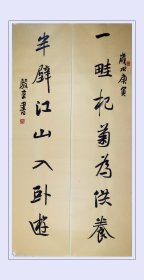 歲次庚寅
一畦杞菊為供養
半壁江山入卧遊
殿宜書